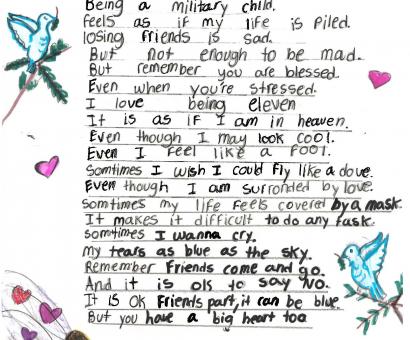 Being a military child.
feels as if my life is piled.
losing friends is sad.
But not enough to be mad.
But remember you are blessed.
Even when you're stressed.
I love being eleven
It is as if I am in heaven.
Even though I may look cool.
Even I feel like a fool.
Somtimes I wish I could fly like a dove.
Even though I am surronded by love.
somtimes my life feels covered by a mask.
It makes it difficult to do any task.
somtimes I wanna cry.
my tears as blue as the sky.
Remember Friends come and go.
And it is ok to say No.
It is OK Friends part, it can be blue.
But you have a big heart too